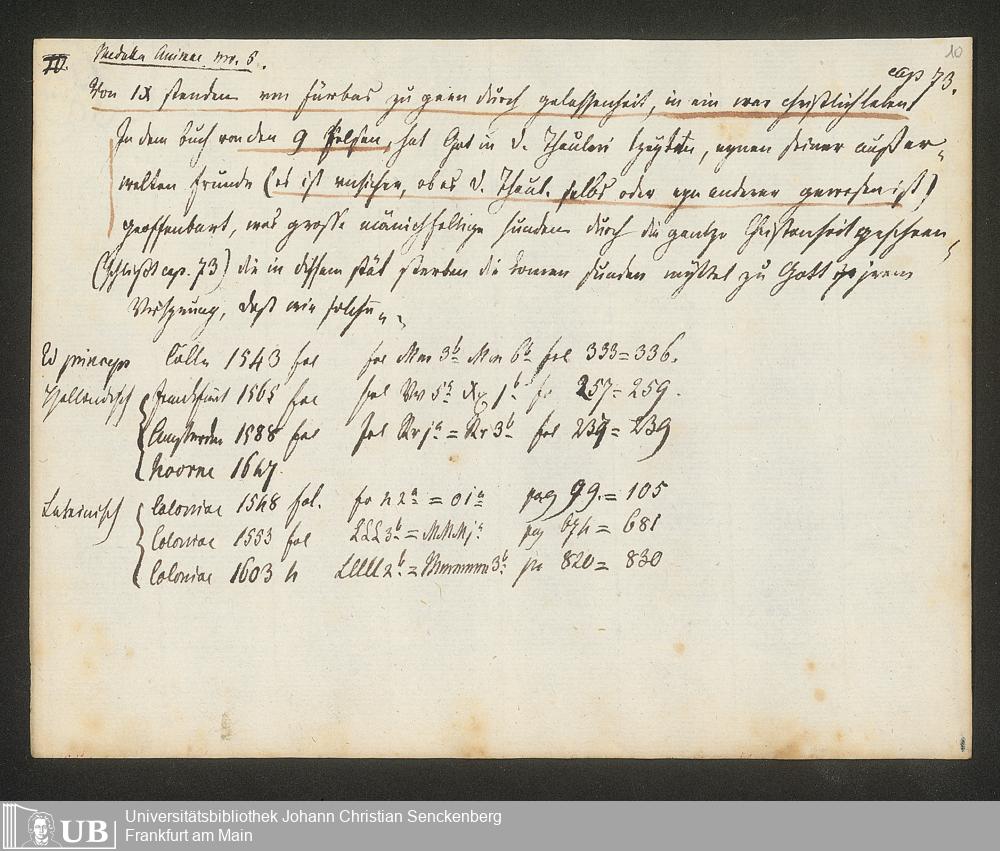 10
IV. Medulla Animae nro. 6.
cap 73.
Von IX stenden von fürbas zu geen durch gelassenheit, in ein war christlich leben
In dem buch von den 9 Felsen, hat Got in D. Thauleri tzeyten, eynen seiner außer-
welten frunde (es ist unsicher, ob es D. Thaul. selbs oder eyn anderer gewesen ist)
geoffenbart, was grosse mänichfeltige sunden durch die gantze Christenheit geschehen
(Schließt cap. 73) die in dissem stät sterben die komen sunder myttel zu Gott jrem
Vrsprung, daß wir
Ed princeps Cölln 1543 fol fol Mm 3b Mm 6b fol 333=336.
Holländisch Franckfurt 1565 fol fol Vv 5a Xx jb fo 257=259.
Amsterdam 1588 fol fol Rr ja = Rr 3b fol 237=239
Hoorne 1647.
Lateinisch Coloniae 1548 fol. fo n 2a = o ia pag 99.=105
Coloniae 1553 fol LLL3b = MMMja pag 674=681
Coloniae 1603 4 LLLLL2b = Mmmmmm3b pa 820=830
UB
Universitätsbibliothek Johann Christian Senckenberg
Frankfurt am Main